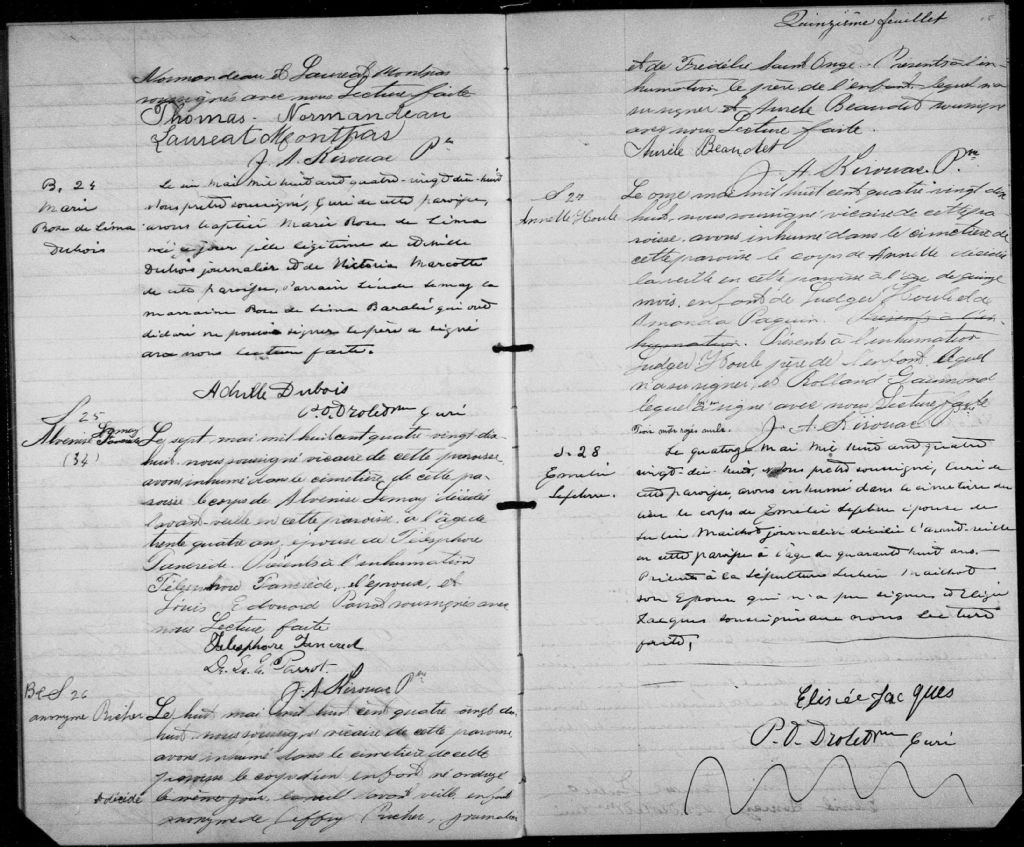 Normandeau et Laureat Montpas
soussignés avec nous Lecture faite
Thomas Normandeau
Laureat Montpas
J. A. Kirouac Ptre
B. 24
Marie
Rose de Lima
Dubois
Le un Mai mil huit cent quatre-vingt dix-huit
Nous prêtre soussigné, Curé de cette paroisse,
avons baptisé Marie Rose de Lima
née ce jour fille légitime de Achille
Dubois journalier et de Victoria Marcotte
de cette paroisse, parrain Lemay la
marraine Rose de Lima qui ont
déclaré ne pouvoir signer le père a signé
avec nous lecture faite.
Achille Dubois
P. O. Drolet Ptre Curé
S 25
Alvenise Lemay
(34)
Le sept mai mil huit cent quatre vingt dix
huit, nous soussigné vicaire de cette paroisse
avons inhumé dans le cimetière de cette pa-
roisse le corps de Alvenise Lemay décédée
l'avant-veille en cette paroisse, à l'âge de
trente quatre ans, épouse de Télesphore
Tancrède. Présents à l'inhumation
Télesphore Tancrède, l'époux, et
Louis Edouard Parrot soussignés avec
nous Lecture faite
Telesphore Tancred
Dr. L. E. Parrot.
J. A. Kirouac Ptre
B et S 26
anonyme Richer
Le huit mai mil huit cent quatre vingt dix
huit, nous soussigné vicaire de cette paroisse
avons inhumé dans le cimetière de cette
paroisse le corps d'un enfant né ondoyé
& décédé
le même jour l'avant veille, enfant
anonyme de Richer, journalier
Quinzième feuillet
et de Frédélie Saint Onge. Présents à l'in-
humation le père de l'enfant lequel n'a
su signer et Aurèle Beaudet soussigné
avec nous Lecture faite.
Aurèle Beaudet
J. A. Kirouac Ptre
S 27
Annette Houle
Le onze mai mil huit cent quatre vingt dix
huit, nous soussigné vicaire de cette pa-
roisse, avons inhumé dans le cimetière de
cette paroisse le corps de Annette décédée
la veille en cette paroisse à l'âge de quinze
mois, enfant de Ludger Houle et de
Amanda Paquin. Présents à l'in-
humation. Présents à l'inhumation
Ludger Houle père de l'enfant lequel
n'a su signer, et Rolland Gaumond
lequel a signé avec nous Lecture faite
Trois mots rayés nuls. J. A. Kirouac Ptre
S. 28
Emelie
Lefebvre.
Le quatorze Mai Mil huit cent quatre
vingt-dix-huit, Nous prêtre soussigné, Curé de
cette paroisse avons inhumé dans le cimetière du
lieu le corps de Emelie Lefebvre épouse de
Lubin Mailhot journalier décédée l'avant-veille
en cette paroisse à l'âge de quarante huit ans.
Présents à la sépulture Lubin Mailhot
son Epoux qui n'a pu signer et Elisée
Jacques soussigné avec nous lecture
faite.
Elisée Jacques
P. O. Drolet Ptre Curé